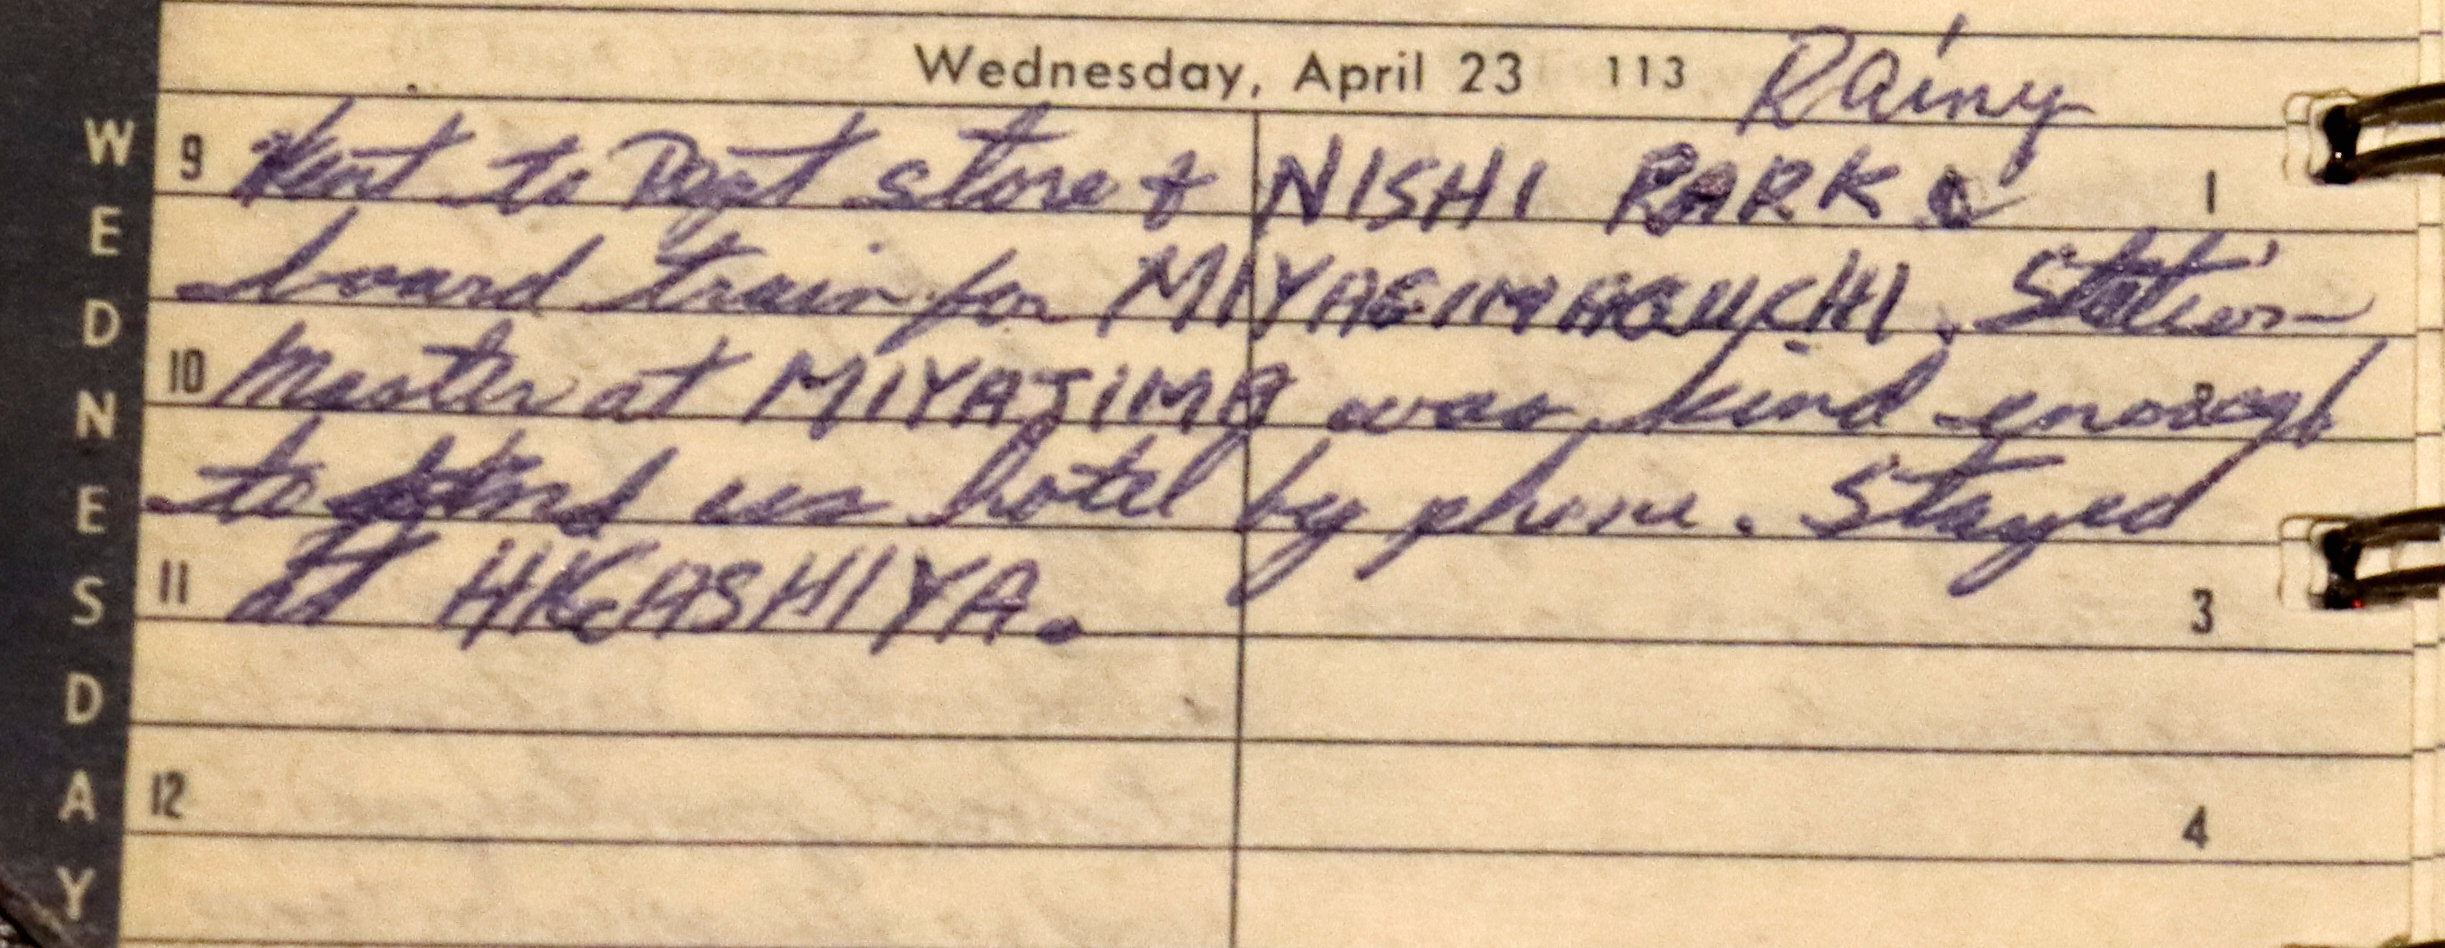 Wednesday, April 23 113 Rainy
9 Went to Dept store & NISHI PARK & 1
board train for MIYAGIMAGUCHI. Station
10 Master at MIYAJIMA was kind enough 2
to us hotel by phone. Stayed
11 at HIGASHIYA. 3
12 4
WEDNESDAY